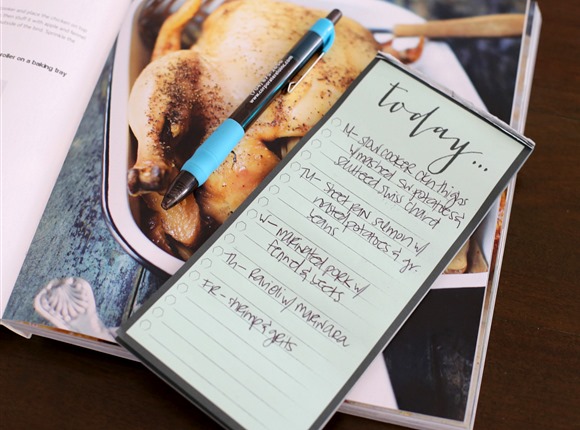 cooker and place the chicken on top
then stuff it with apple and fennel
outside of the bird. Sprinkle the
roller on a baking tray
today...
M- slow cooker ckn thighs
w/mashed sw. potatoes &
sauteed swiss chard
TU- sheet pan salmon w/
roasted potatoes & gr.
beans
W- marinated pork w/
fennel & beets
TH- Ravioli w/ marinara
FR- shrimp & grits